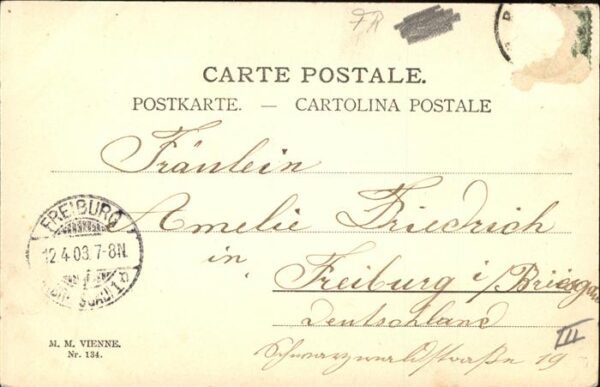 FR
CARTE POSTALE.
POSTKARTE. — CARTOLINA POSTALE
Fräulein
Amelie Friedrich
in Freiburg i/Briesgau
Deutschland
Schwarzwaldstraße 19
III
FREIBURG
12.4.03.7-8N.
M. M. VIENNE.
Nr. 134.